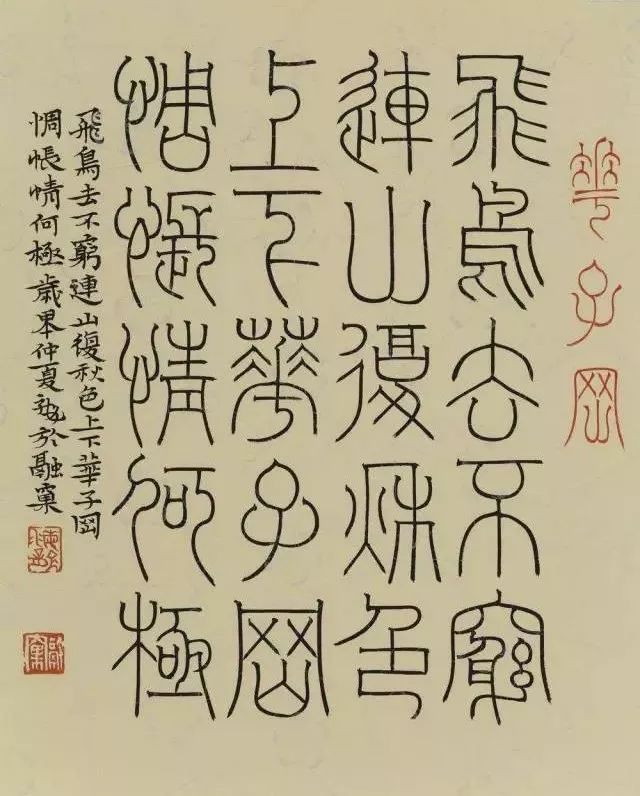 華子岡
飛鳥去不窮
連山復秋色
上下華子岡
惆悵情何極
飛鳥去不窮連山復秋色上下華子岡
惆悵情何極歲仲夏於融窠